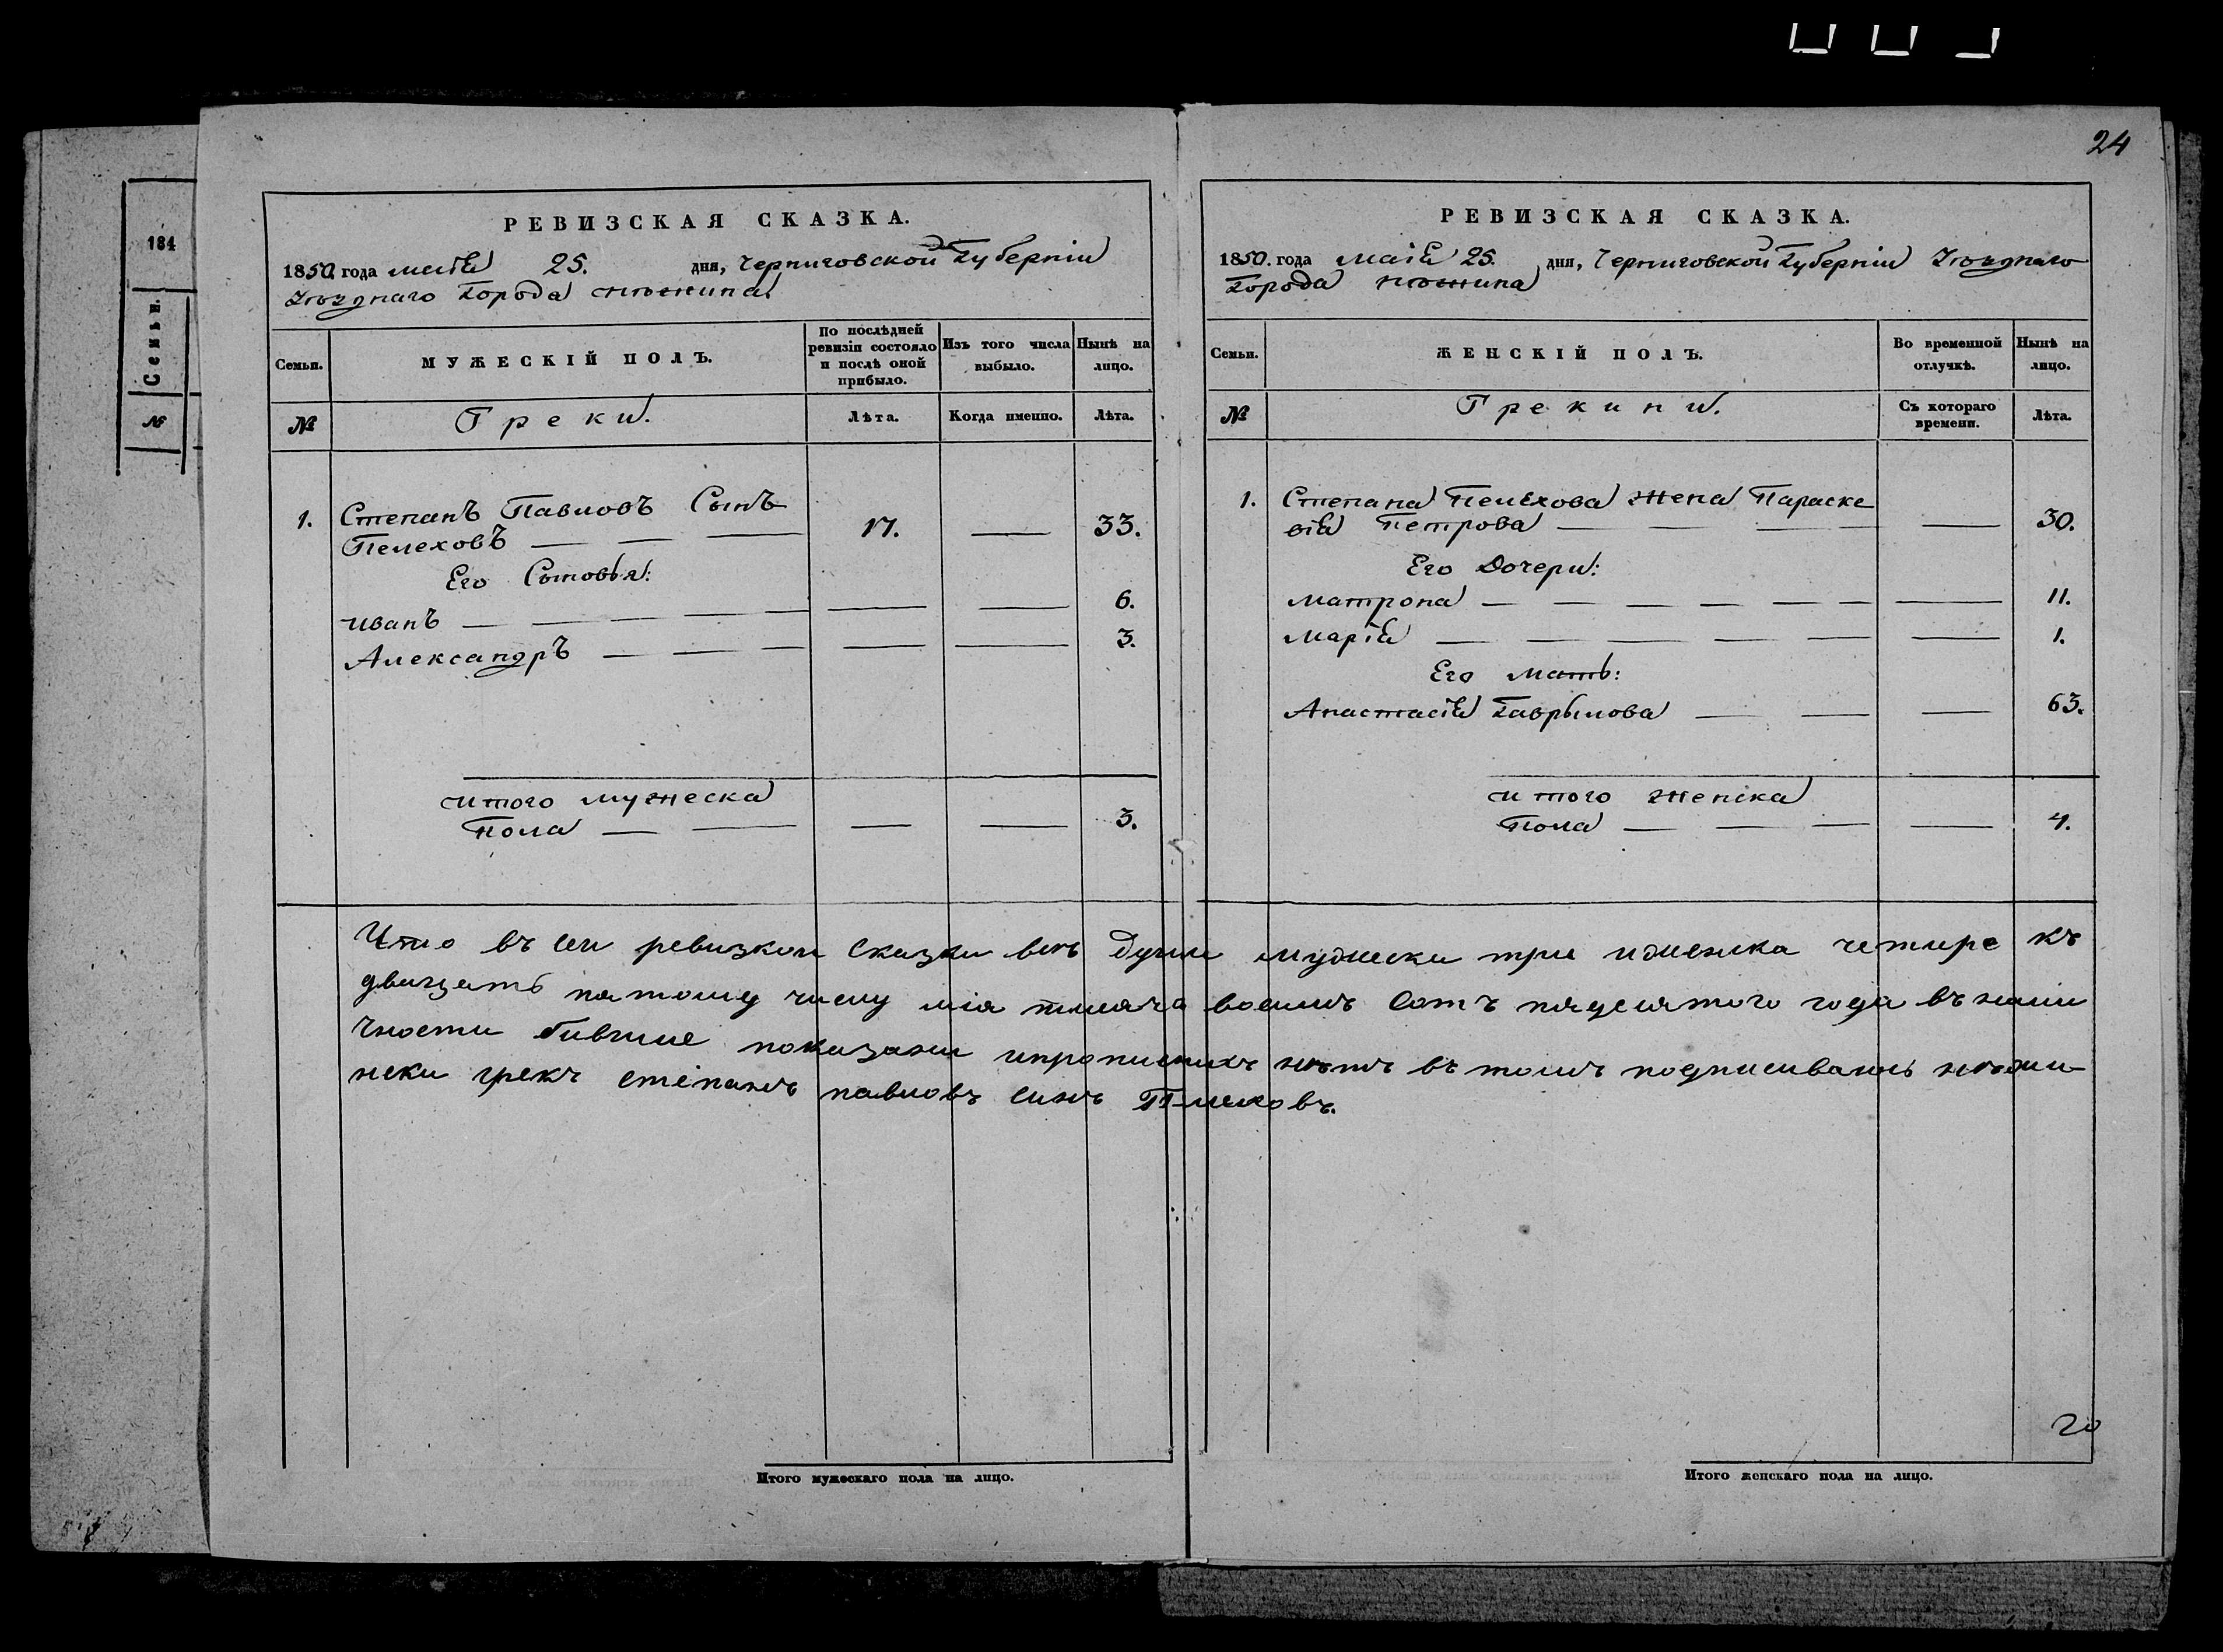 24
184
Семьи.
№
РЕВИЗСКАЯ СКАЗКА.
1850 года маія 25. дня, Черниговской Губерніи
Уѣзднаго Города Нѣжина
Семьи.
МУЖЕСКІЙ ПОЛЪ.
По послѣдней ревизіи состояло и послѣ оной прибыло.
Изъ того числа выбыло.
Нынѣ на лицо.
№
Греки.
Лѣта.
Когда именно.
Лѣта.
1. Степанъ Павловъ Сынъ
Пелеховъ — — — 17. — 33.
Его Сыновья:
Иванъ — — — — — — 6.
Александръ — — — — — 3.
Итого мужеска
пола — — — — 3.
РЕВИЗСКАЯ СКАЗКА.
1850. года Маія 25. дня, Черниговской Губерніи Уѣзднаго
Города Нѣжина
Семьи.
ЖЕНСКІЙ ПОЛЪ.
Во временной отлучкѣ.
Нынѣ на лицо.
№
Грекини.
Съ котораго времени.
Лѣта.
1. Степана Пелехова Жена Параске
вія Петрова — — — — 30.
Его Дочери:
Матрона — — — — — — — 11.
Марія — — — — — — 1.
Его Мать:
Анастасія Гаврылова — — — 63.
Итого женска
Пола — — — — 4.
Что въ сеи ревизкои сказки всѣ Души мужески три иженска четире къ
двацеть пятому числу мія тисяча восимъ сотъ пядесятого года въ нали
чности бившие показани ипрописнихъ нѣтъ въ томъ подписиваюсь нѣжи-
нски грекъ степанъ павловъ синъ Пелеховъ.
20
Итого мужескаго пола на лицо.
Итого женскаго пола на лицо.